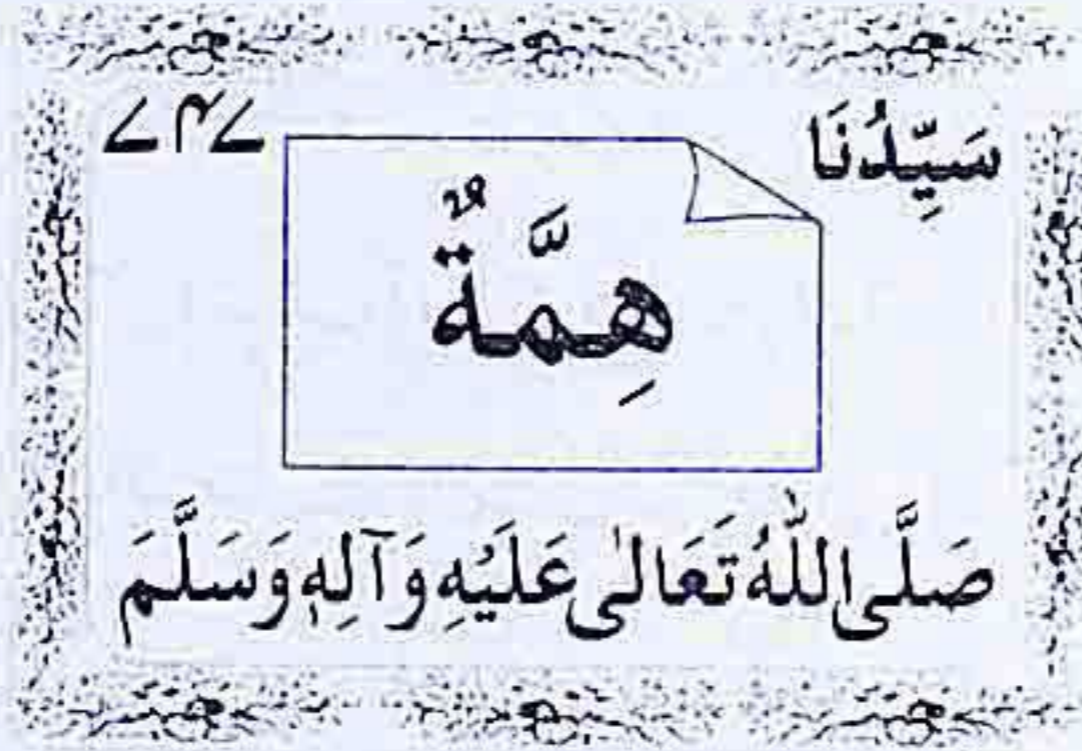 سَيِّدُنَا ۷۴۷
هِمَّةٌ
صَلَّى اللّٰهُ تَعَالٰى عَلَيْهِ وَآلِهٖ وَسَلَّمَ